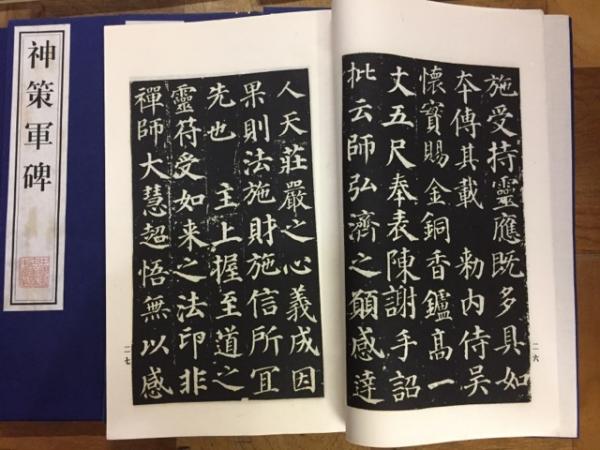 神策軍碑
施受持靈應既多具如
夲傳其載 勅内侍吴
懷實賜金銅香鑪髙一
丈五尺奉表陳謝手詔
批云師弘濟之願感達
二六
人天莊嚴之心義成因
果則法施財施信所冝
先也 主上握至道之
靈符受如来之法印非
禪師大慧超悟無以感
二七